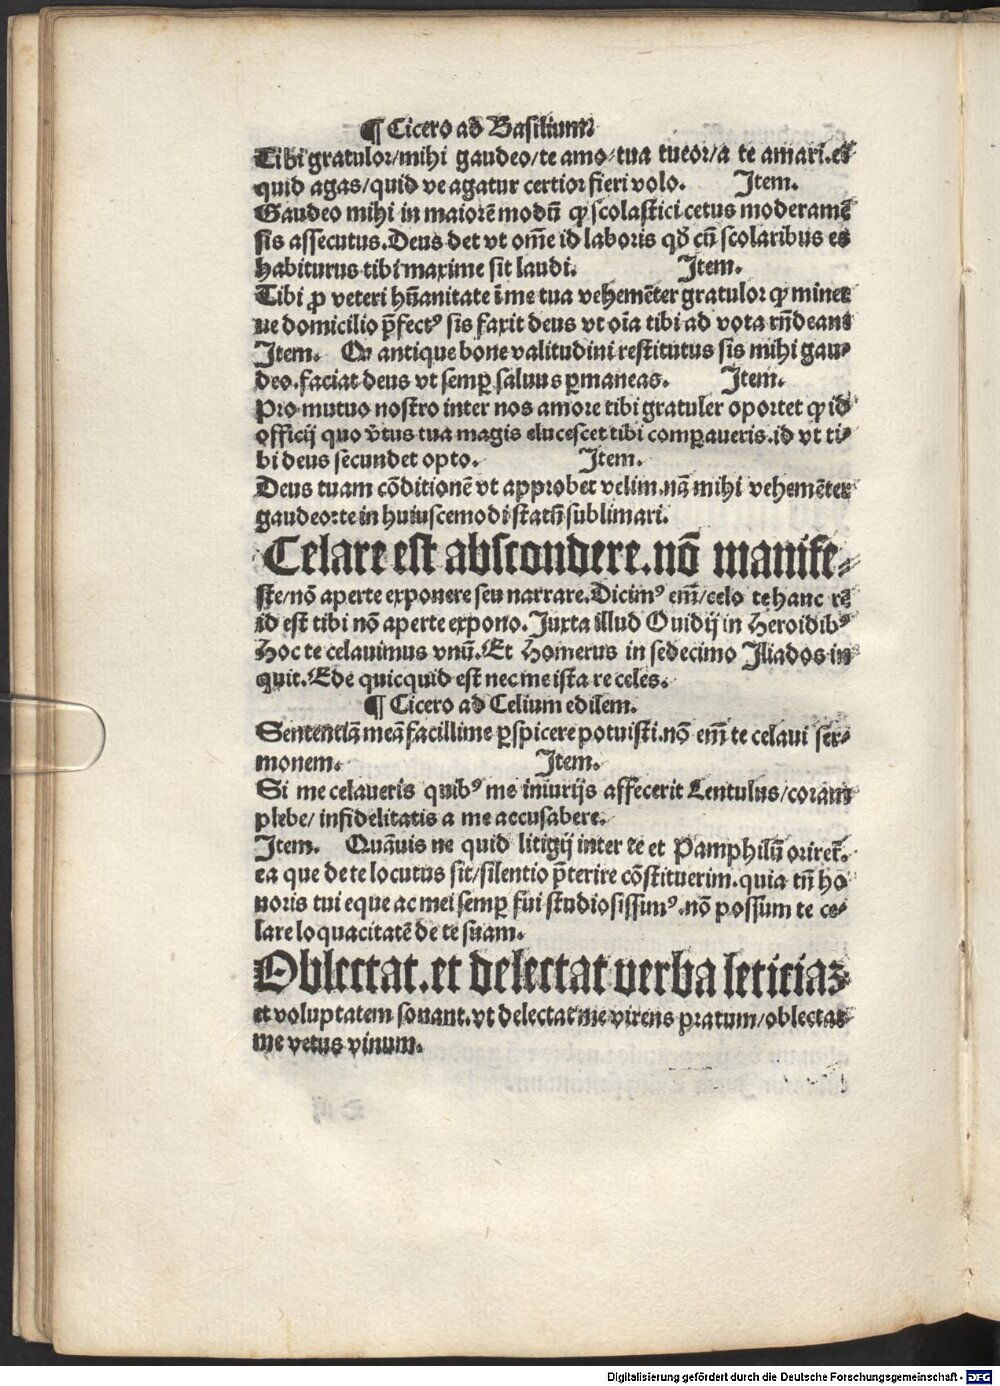 ¶ Cicero ad Basilium
Tibi gratulor/mihi gaudeo/te amo/tua tueor/a te amari.et
quid agas/quid ve agatur certior fieri volo. Item.
Gaudeo mihi in maiorē modū ꝙ scolastici cetus moderamē
sis assecutus.Deus det vt om̄e id laboris qd̓ cū scolaribus es
habiturus tibi maxime sit laudi. Item.
Tibi ꝓ veteri hūanitate ī me tua vehemēter gratulor ꝙ miner
ue domicilio p̄fectꝰ sis faxit deus vt oīa tibi ad vota rn̄deant
Item. Qꝫ antique bone valitudini restitutus sis mihi gau⸗
deo.faciat deus vt semꝑ saluus ꝑmaneas. Item.
Pro mutuo nostro inter nos amore tibi gratuler oportet ꝙ id
officij quo v̓tus tua magis elucescet tibi comꝑaueris.id vt ti⸗
bi deus secundet opto. Item.
Deus tuam cōditionē vt approbet velim.nā mihi vehemēter
gaudeo:te in huiuscemodi statū sublimari.
Celare est abscondere.nō manife⸗
ste/nō aperte exponere seu narrare.Dicimꝰ em̄/celo te hanc rē
id est tibi nō aperte expono.Juxta illud Ouidij in Heroidibꝰ
Hoc te celauimus vnū.Et Homerus in sedecimo Iliados in
quit.Ede quicquid est nec me ista re celes.
¶ Cicero ad Celium edilem.
Sententiā meā facillime ꝑspicere potuisti.nō em̄ te celaui ser⸗
monem. Item.
Si me celaueris quibꝰ me iniurijs affecerit Lentulus/coram
plebe/infidelitatis a me accusabere.
Item. Quāuis ne quid litigij inter te et Pamphilū oriret̄.
ea que de te locutus sit/silentio p̄terire cōstituerim.quia tn̄ ho
noris tui eque ac mei semꝑ fui studiosissimꝰ.nō possum te ce⸗
lare loquacitatē de te suam.
Oblectat.et delectat verba leticiaz
et voluptatem sonant.vt delectat me virens pratum/oblectat
me vetus vinum.
Digitalisierung gefördert durch die Deutsche Forschungsgemeinschaft - DFG